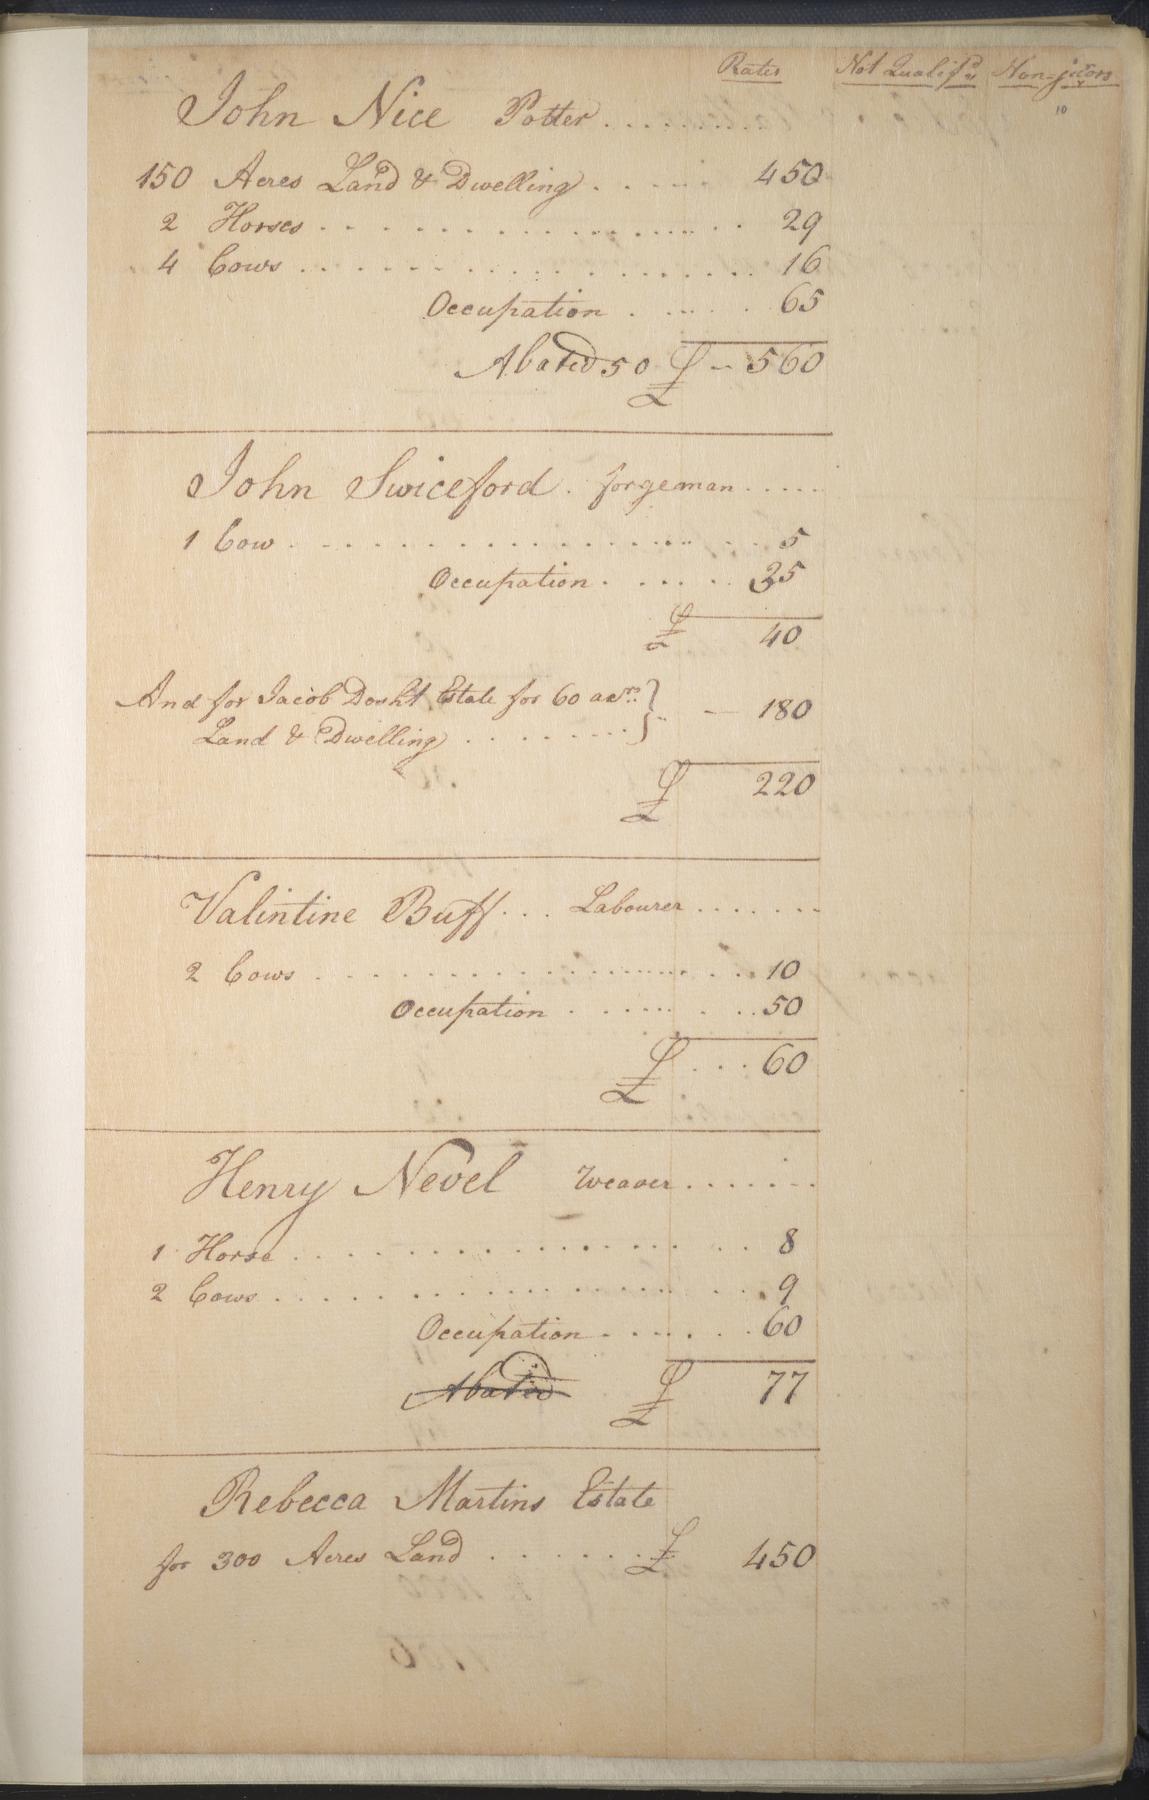 Rates Not Qualif'd Non-jurors
10
John Nice Potter
150 Acres Land & Dwelling 450
2 Horses 29
4 Cows 16
Occupation 65
Abated 50 £ 560
John Swiceford. forgeman
1 Cow 5
Occupation 35
£ 40
And for Jacob Estate for 60 acrs.
Land & Dwelling 180
£ 220
Valintine Buff Labourer
2 Cows 10
Occupation 50
£ 60
Henry Nevel Weaver
1 Horse 8
2 Cows 9
Occupation 60
Abated £ 77
Rebecca Martins Estate
for 300 Acres Land £ 450